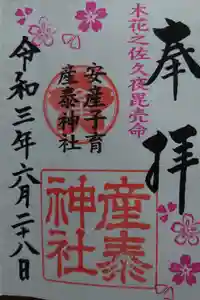 奉拝
木花之佐久夜毘売命
安産子育
産泰神社
産泰
神社
令和三年六月二十八日